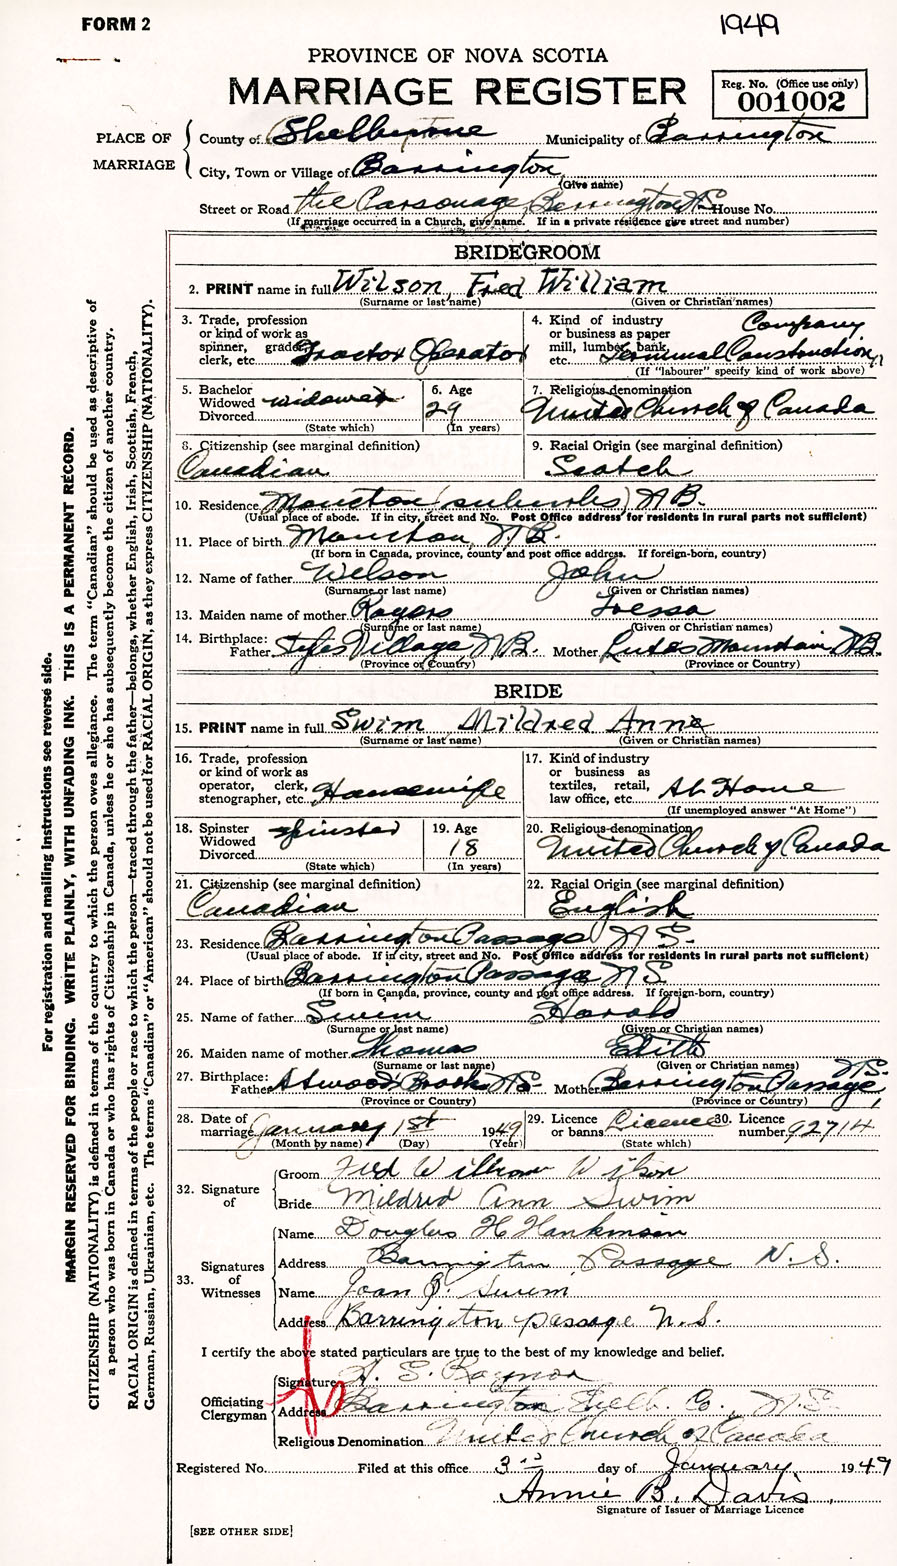 FORM 2
1949
PROVINCE OF NOVA SCOTIA
MARRIAGE REGISTER
Reg. No. (Office use only)
001002
PLACE OF MARRIAGE
County of Shelburne Municipality of Barrington
City, Town or Village of Barrington
(Give name)
Street or Road the Parsonage, Barrington N.S. House No.
(If marriage occurred in a Church, give name. If in a private residence give street and number)
BRIDEGROOM
2. PRINT name in full Wilson, Fred William
(Surname or last name) (Given or Christian names)
3. Trade, profession or kind of work as spinner, grader, clerk, etc. Tractor Operator
4. Kind of industry or business as paper mill, lumber, bank, etc. Terminal Construction Company
(If "labourer" specify kind of work above)
5. Bachelor Widowed Divorced widowed
(State which)
6. Age 29
(In years)
7. Religious denomination United Church of Canada
8. Citizenship (see marginal definition)
Canadian
9. Racial Origin (see marginal definition)
Scotch
10. Residence Moncton (suburbs) N.B.
(Usual place of abode. If in city, street and No. Post Office address for residents in rural parts not sufficient)
11. Place of birth Moncton, N.B.
(If born in Canada, province, county and post office address. If foreign-born, country)
12. Name of father Wilson John
(Surname or last name) (Given or Christian names)
13. Maiden name of mother Rogers Tressa
(Surname or last name) (Given or Christian names)
14. Birthplace: Father Village N.B. Mother Lutes Mountain N.B.
(Province or Country) (Province or Country)
BRIDE
15. PRINT name in full Swim Mildred Anne
(Surname or last name) (Given or Christian names)
16. Trade, profession or kind of work as operator, clerk, stenographer, etc. Housewife
17. Kind of industry or business as textiles, retail, law office, etc. At Home
(If unemployed answer "At Home")
18. Spinster Widowed Divorced spinster
(State which)
19. Age 18
(In years)
20. Religious denomination United Church of Canada
21. Citizenship (see marginal definition)
Canadian
22. Racial Origin (see marginal definition)
English
23. Residence Barrington Passage N.S.
(Usual place of abode. If in city, street and No. Post Office address for residents in rural parts not sufficient)
24. Place of birth Barrington Passage N.S.
(If born in Canada, province, county and post office address. If foreign-born, country)
25. Name of father Swim Harold
(Surname or last name) (Given or Christian names)
26. Maiden name of mother Thomas Edith
(Surname or last name) (Given or Christian names)
27. Birthplace: Father Atwoods Brook N.S. Mother Barrington Passage, N.S.
(Province or Country) (Province or Country)
28. Date of marriage January 1st 1949
(Month by name) (Day) (Year)
29. Licence or banns Licence
(State which)
30. Licence number 92714
32. Signature of
Groom Fred William Wilson
Bride Mildred Ann Swim
33. Signatures of Witnesses
Name Douglas H
Address Barrington Passage N.S.
Name Joan Swim
Address Barrington passage N.S.
I certify the above stated particulars are true to the best of my knowledge and belief.
Officiating Clergyman
Signature A. E. Raynor
Address Barrington Shelb. Co., N.S.
Religious Denomination United Church of Canada
Registered No. Filed at this office 3rd day of January 1949
Annie B. Davis
Signature of Issuer of Marriage Licence
[SEE OTHER SIDE]
For registration and mailing instructions see reverse side.
MARGIN RESERVED FOR BINDING. WRITE PLAINLY, WITH UNFADING INK. THIS IS A PERMANENT RECORD.
CITIZENSHIP (NATIONALITY) is defined in terms of the country to which the person owes allegiance. The term "Canadian" should be used as descriptive of
a person who was born in Canada or who has rights of Citizenship in Canada, unless he or she has subsequently become the citizen of another country.
RACIAL ORIGIN is defined in terms of the people or race to which the person—traced through the father—belongs, whether English, Irish, Scottish, French,
German, Russian, Ukrainian, etc. The terms "Canadian" or "American" should not be used for RACIAL ORIGIN, as they express CITIZENSHIP (NATIONALITY).